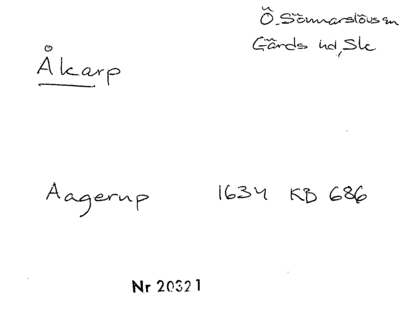 Ö. Sönnarslövs sn
Gärds hd, Sk
Åkarp
Aagerup 1634 KB 686
Nr 20321